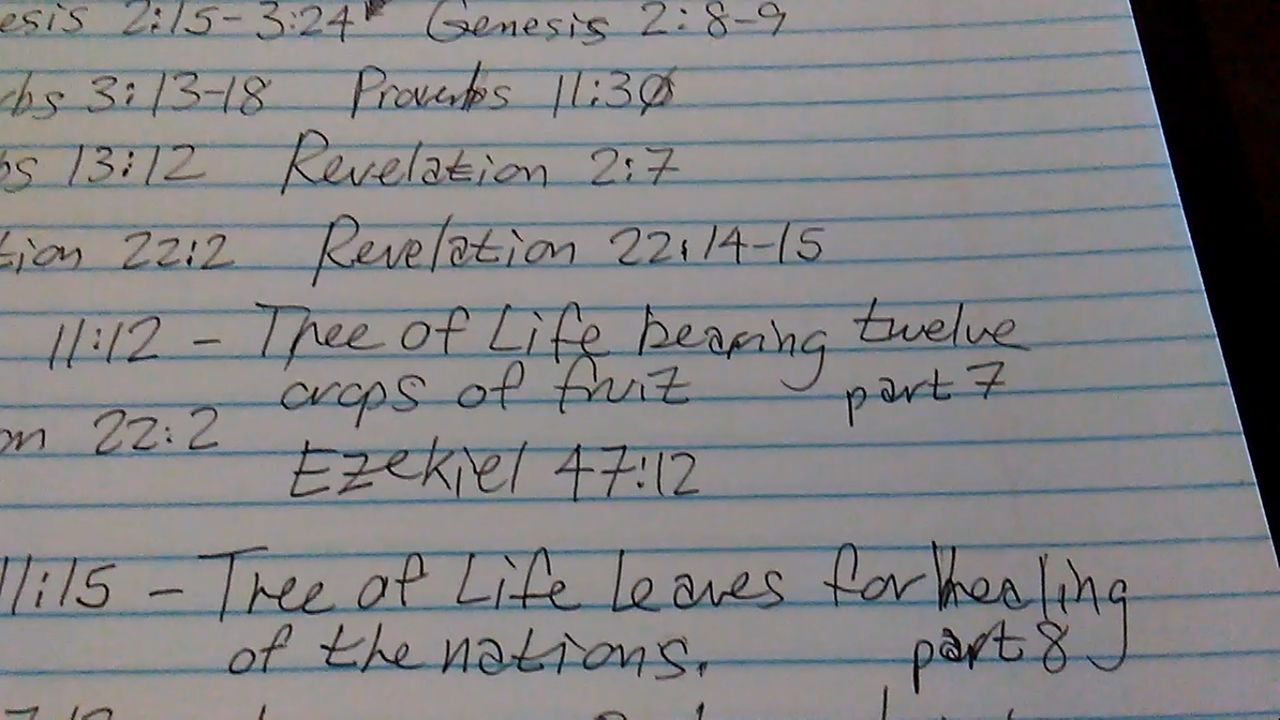 esis 2:15-3:24 Genesis 2:8-9
rbs 3:13-18 Proverbs 11:30
bs 13:12 Revelation 2:7
tion 22:2 Revelation 22:14-15
11:12 - Tree of Life bearing twelve
crops of fruit part 7
on 22:2
Ezekiel 47:12
11:15 - Tree of Life leaves for healing
of the nations. part 8